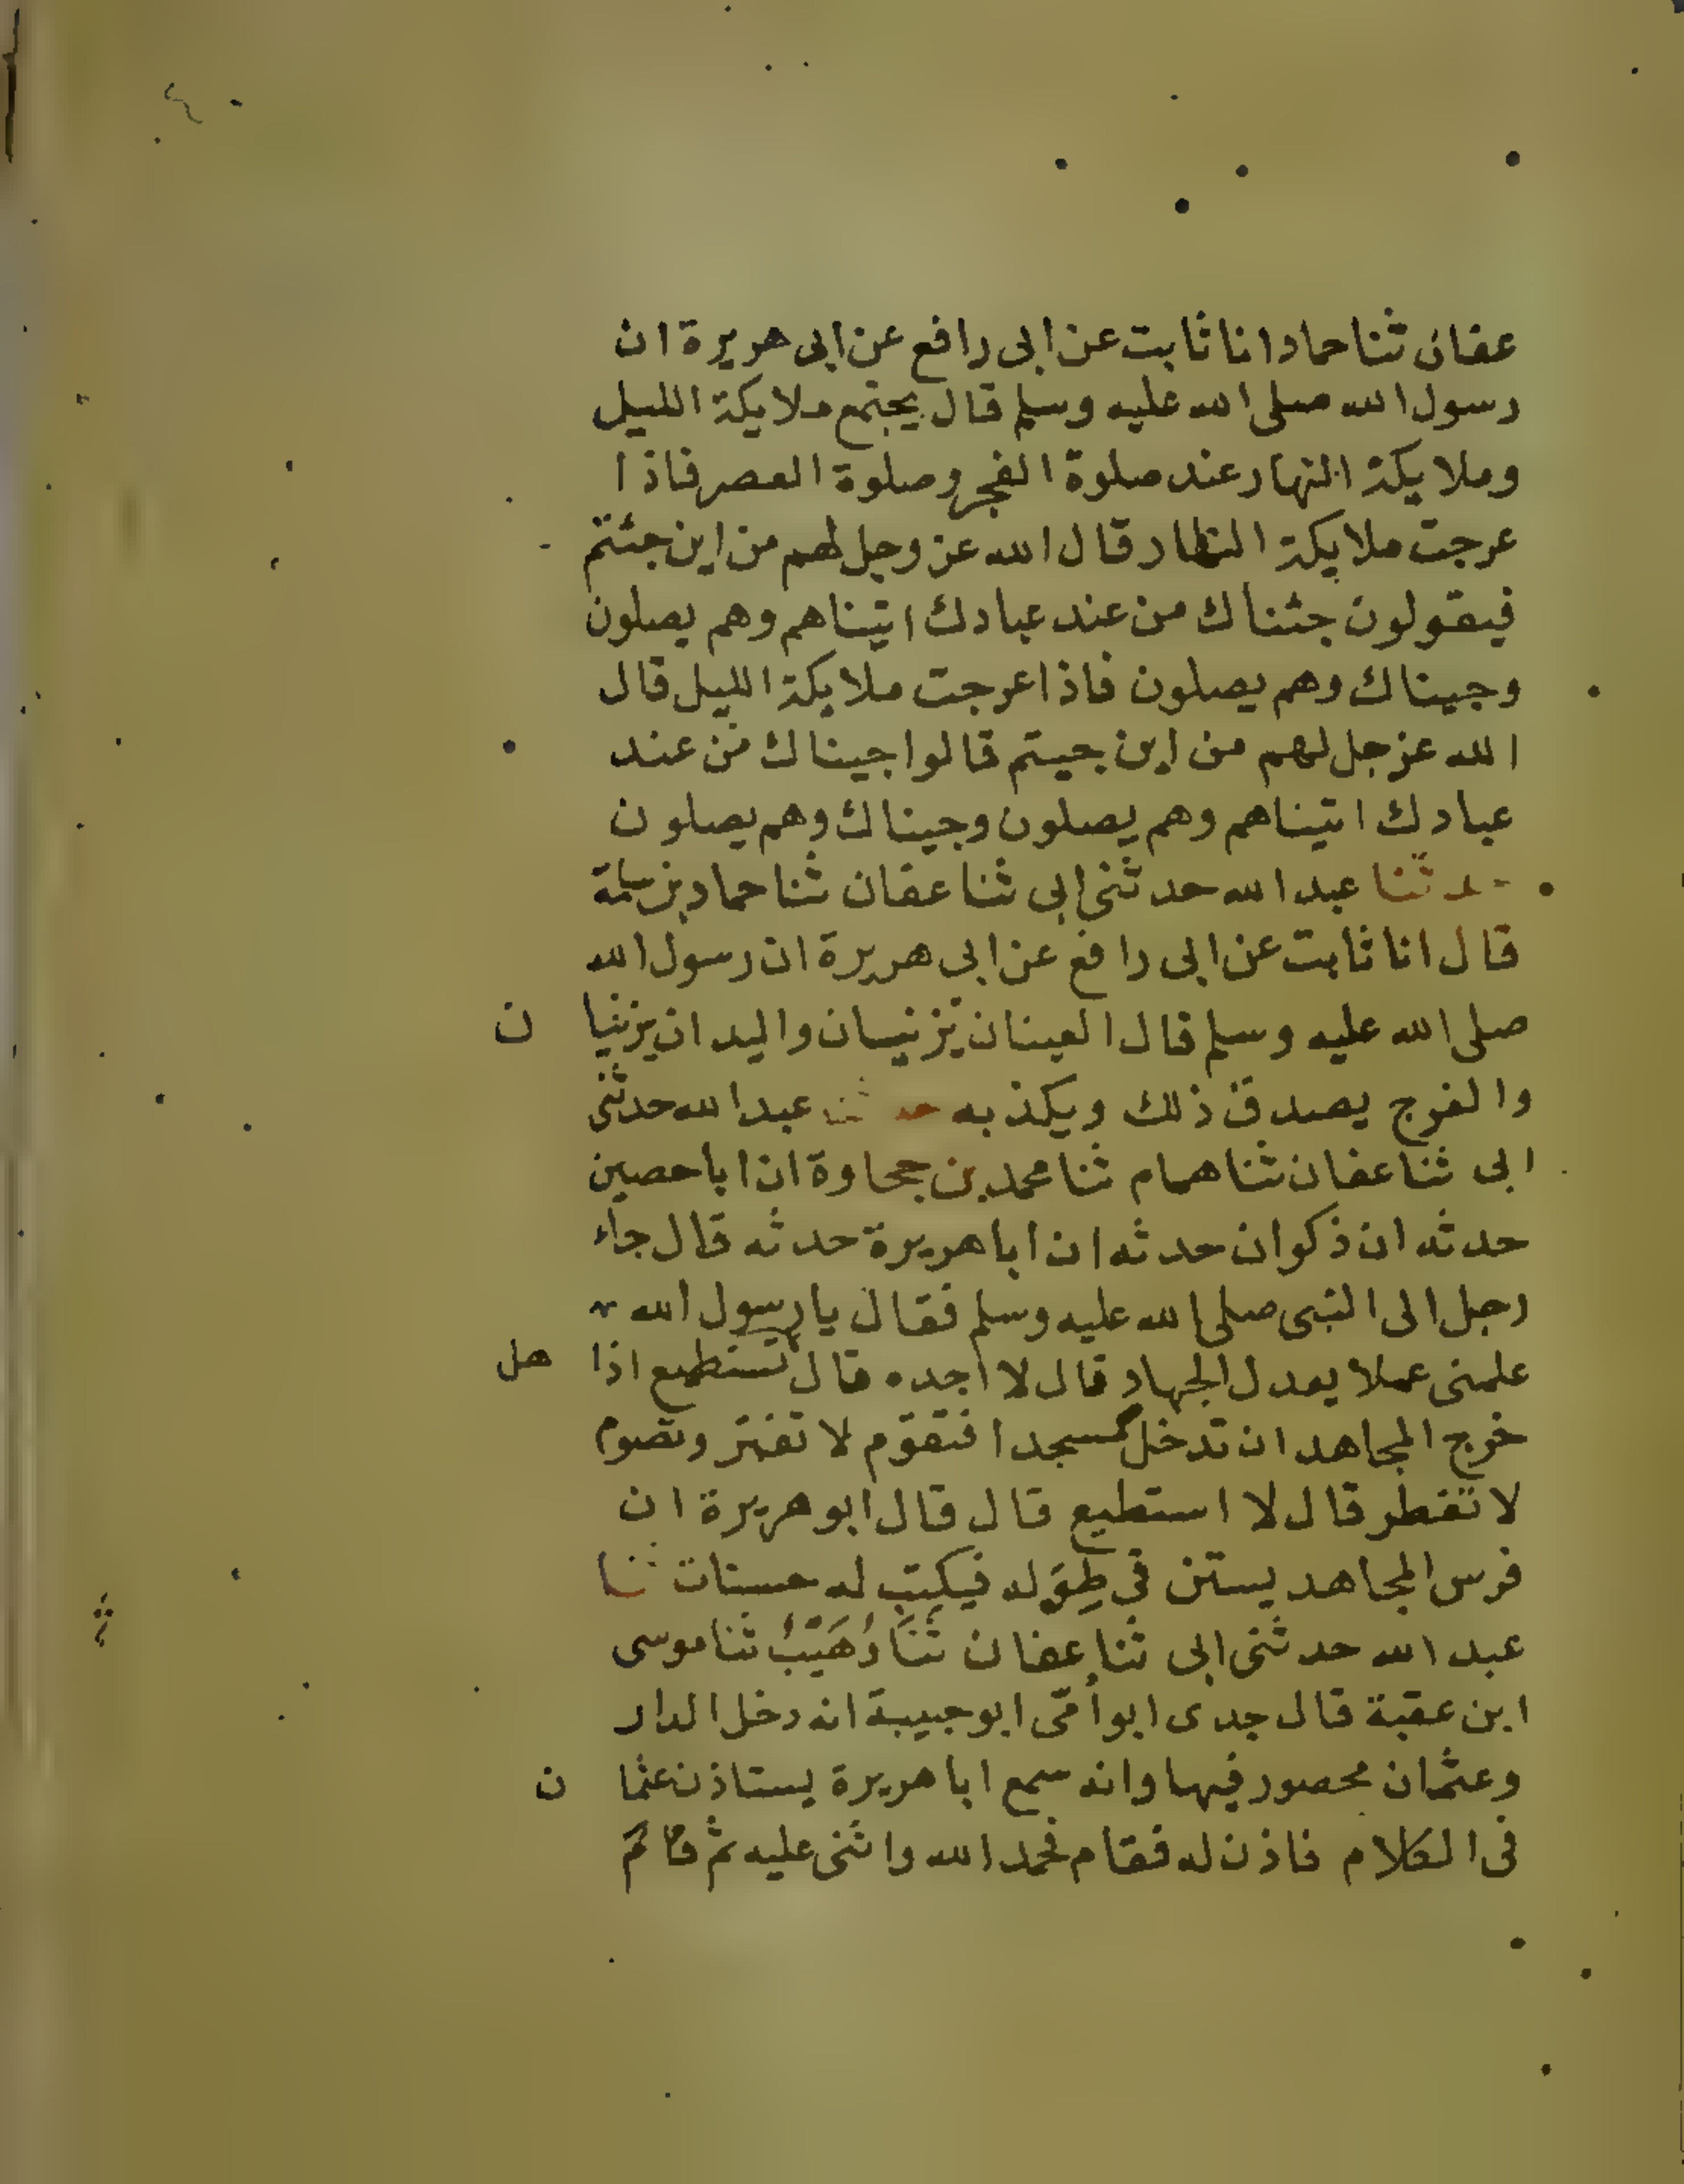 عفان ثنا حماد انا ثابت عن ابى رافع عن ابى هريرة ان
رسول الله صلى الله عليه وسلم قال يجتمع ملايكة الليل
وملايكة النهار عند صلوة الفجر وصلوة العصر فاذا
عرجت ملايكة النهار قال الله عز وجل لهم من اين جئتم
فيقولون جئناك من عند عبادك اتيناهم وهم يصلون
وجيناك وهم يصلون فاذا عرجت ملايكة الليل قال
الله عز جل لهم من اين جيتم قالوا جيناك من عند
عبادك اتيناهم وهم يصلون وجيناك وهم يصلون
حدثنا عبد الله حدثنى ابى ثنا عفان ثنا حماد بن سلمة
قال انا ثابت عن ابى رافع عن ابى هريرة ان رسول الله
صلى الله عليه وسلم قال العينان تزنيان واليدان يزنيا ن
والفرج يصدق ذلك ويكذبه حدثنا عبد الله حدثنى
ابى ثنا عفان ثنا همام ثنا محمد بن جحاوة ان ابا حصين
حدثه ان ذكوان حدثه ان ابا هريرة حدثه قال جاء
رجل الى النبى صلى الله عليه وسلم فقال يا رسول الله
علمنى عملا يعدل الجهاد قال لا اجده قال تستطيع اذا هل
خرج المجاهد ان تدخل مسجدا فتقوم لا تفتر وتصوم
لا تفطر قال لا استطيع قال قال ابو هريرة ان
فرس المجاهد يستن فى طِوَله فيكتب له حسنات ثنا
عبد الله حدثنى ابى ثنا عفان ثَنَا وُهَيْبٌ ثنا موسى
ابن عقبة قال جدى ابو أمّى ابو جبيبة انه دخل الدار
وعثمان محصور فيها وانه سمع ابا هريرة يستاذن عثما ن
فى الكلام فاذن له فقام فحمد الله واثنى عليه ثم